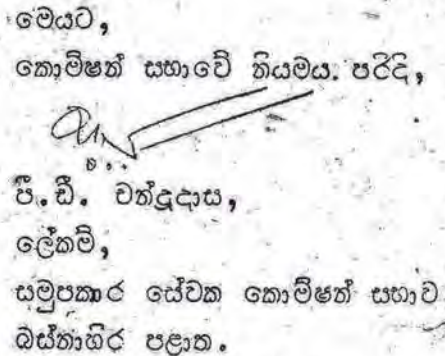 මෙයට,
කොමිෂන් සභාවේ නියමය පරිදි,
පී. ඩී. චන්ද්‍රදාස,
ලේකම්,
සමුපකාර සේවක කොමිෂන් සභාව
බස්නාහිර පළාත.